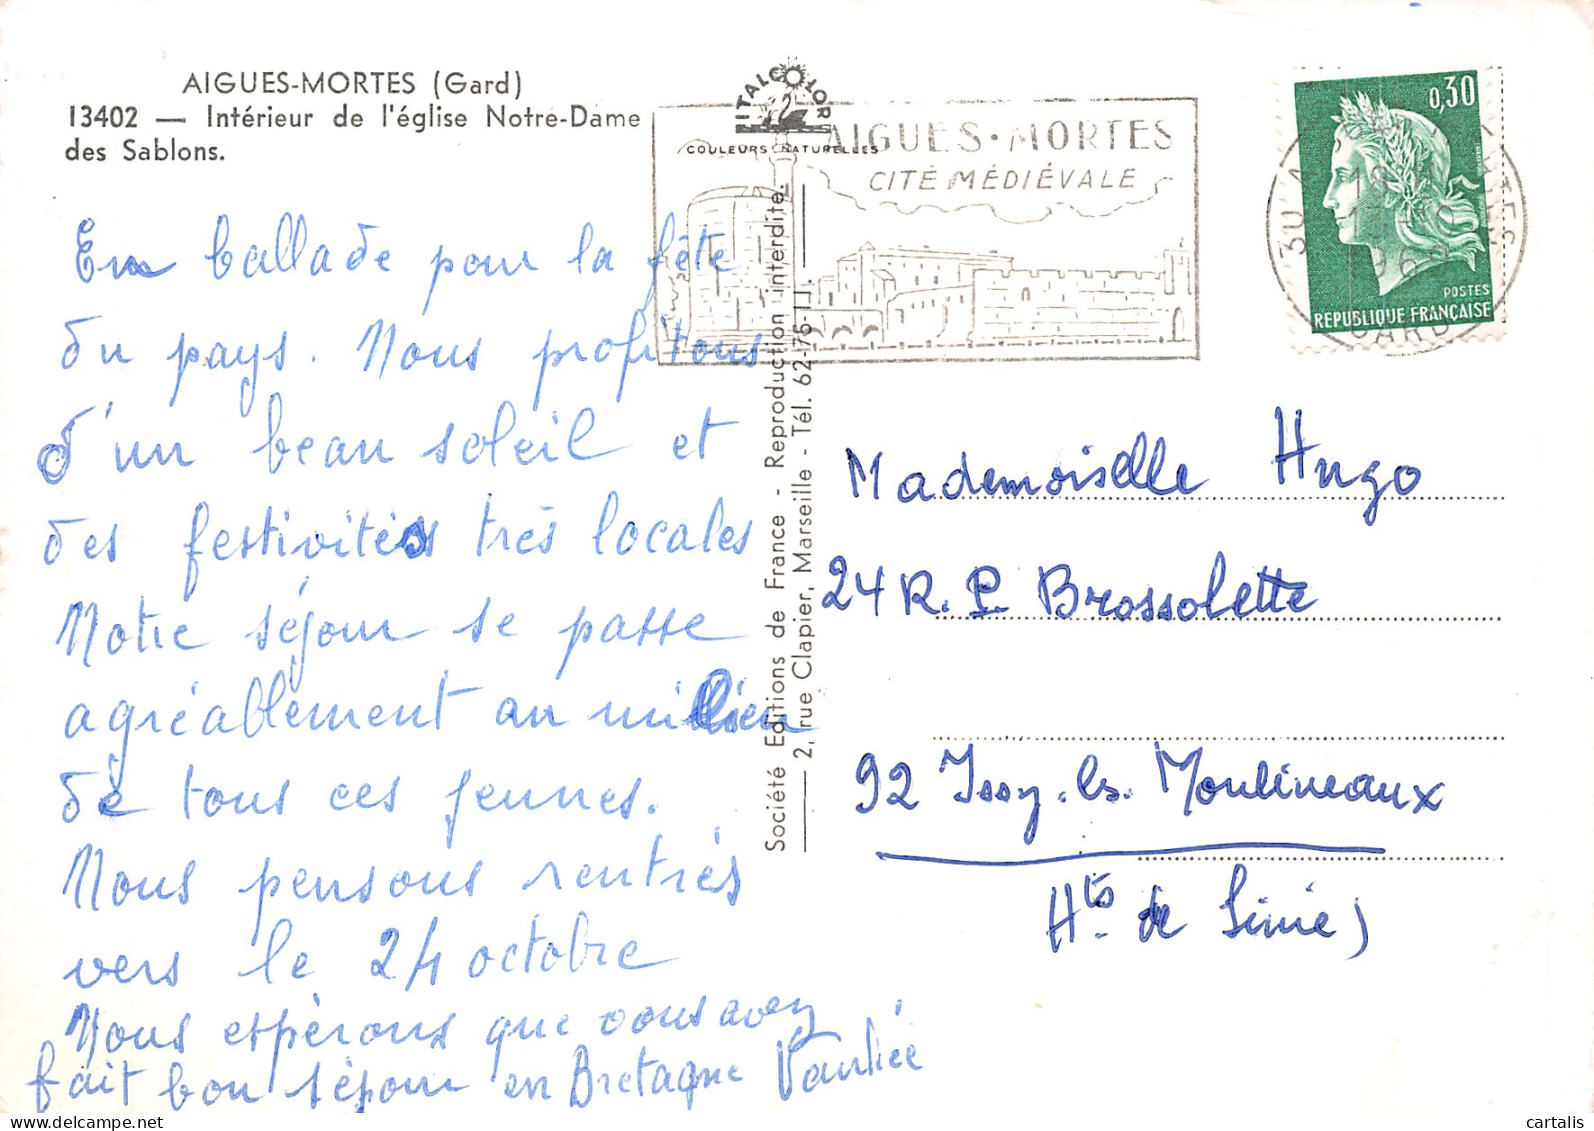 AIGUES-MORTES (Gard)
13402 — Intérieur de l'église Notre-Dame
des Sablons.
En ballade pour la fête
du pays. Nous profitons
d'un beau soleil et
des festivités très locales
Notre séjour se passe
agréablement au milieu
de tous ces jeunes.
Nous pensons rentrés
vers le 24 octobre
Nous espérons que vous avez
fait bon séjour en Bretagne
ITALCOLOR
COULEURS NATURELLES
AIGUES-MORTES
CITÉ MÉDIÉVALE
Société Editions de France - Reproduction interdite.
2, rue Clapier, Marseille - Tél. 62-76-11.
0,30
POSTES
RÉPUBLIQUE FRANÇAISE
GARD
Mademoiselle Hugo
24 R. P. Brossolette
92 Issy-les-Moulineaux
Hts de Seine)
delcampe.net
cartalis